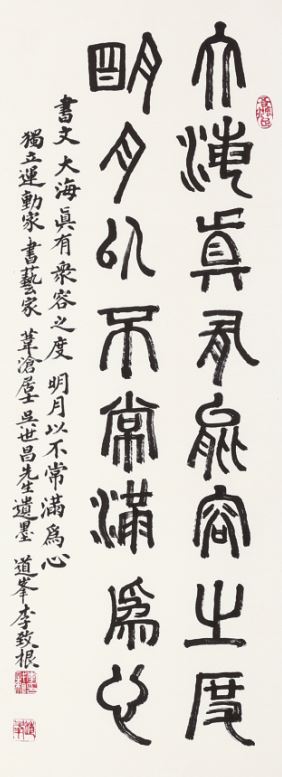 大海眞有能容之度
明月以不常滿爲心
書文 大海眞有衆容之度 明月以不常滿爲心
獨立運動家 書藝家 葦滄居士 吳世昌先生遺墨 道峯 李致根